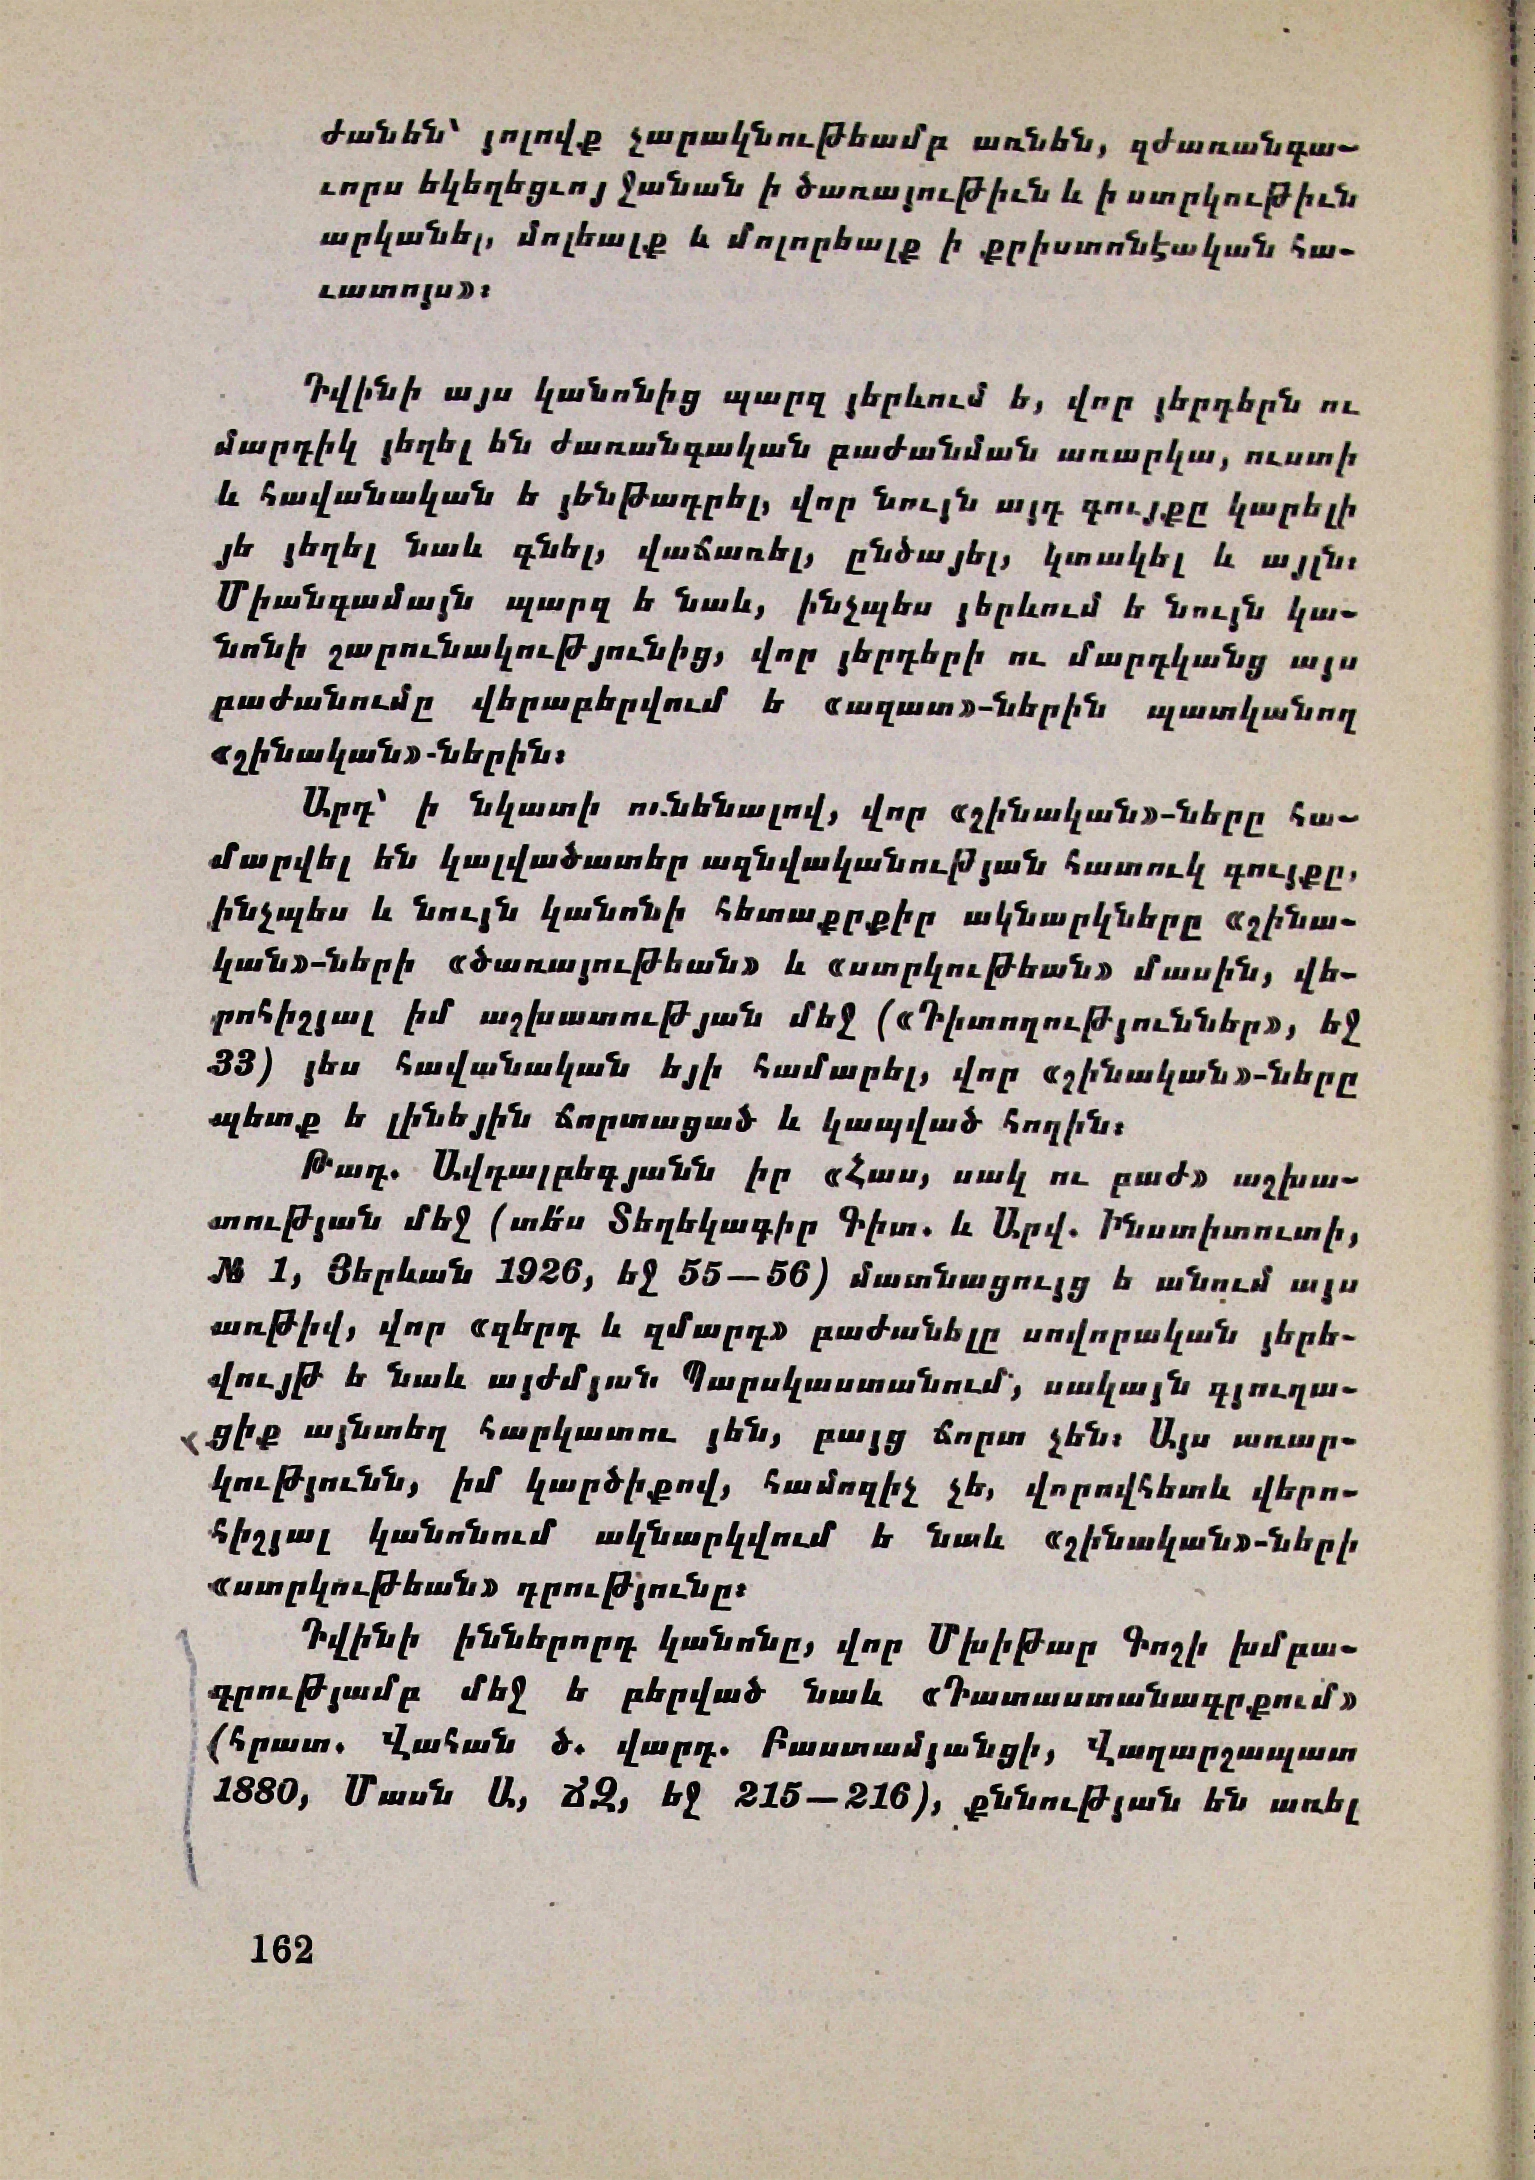 ժանեն՝ յոլովք չարակնութեամբ առնեն, զժառանգա-
ւորս եկեղեցւոյ ջանան ի ծառայութիւն և ի ստրկութիւն
արկանել, մոլեալք և մոլորեալք ի քրիստոնէական հա-
ւատոյս»։
Դվինի այս կանոնից պարզ յերևում ե, վոր յերդերն ու
մարդիկ յեղել են ժառանգական բաժանման առարկա, ուստի
և հավանական ե յենթադրել, վոր նույն այդ գույքը կարելի
յե յեղել նաև գնել, վաճառել, ընծայել, կտակել և այլն։
Միանգամայն պարզ ե նաև, ինչպես յերևում ե նույն կա-
նոնի շարունակությունից, վոր յերդերի ու մարդկանց այս
բաժանումը վերաբերվում ե «ազատ»-ներին պատկանող
«շինական»-ներին։
Արդ՝ ի նկատի ունենալով, վոր «շինական»-ները հա-
մարվել են կալվածատեր ազնվականության հատուկ գույքը,
ինչպես և նույն կանոնի հետաքրքիր ակնարկները «շինա-
կան»-ների «ծառայութեան» և «ստրկութեան» մասին, վե-
րոհիշյալ իմ աշխատության մեջ («Դիտողություններ», եջ
33) յես հավանական եյի համարել, վոր «շինական»-ները
պետք ե լինեյին ճորտացած և կապված հողին։
Թադ. Ավդալբեգյանն իր «Հաս, սակ ու բաժ» աշխա-
տության մեջ (տե՛ս Տեղեկագիր Գիտ. և Արվ. Ինստիտուտի,
№ 1, Յերևան 1926, եջ 55—56) մատնացույց ե անում այս
առթիվ, վոր «զերդ և զմարդ» բաժանելը սովորական յերե-
վույթ ե նաև այժմյան Պարսկաստանում, սակայն գյուղա-
ցիք այնտեղ հարկատու յեն, բայց ճորտ չեն։ Այս առար-
կությունն, իմ կարծիքով, համոզիչ չե, վորովհետև վերո-
հիշյալ կանոնում ակնարկվում ե նաև «շինական»-ների
«ստրկութեան» դրությունը։
Դվինի իններորդ կանոնը, վոր Մխիթար Գոշի խմբա-
գրությամբ մեջ ե բերված նաև «Դատաստանագրքում»
(հրատ. Վահան ծ. վարդ. Բաստամյանցի, Վաղարշապատ
1880, Մասն Ա, ՃԶ, եջ 215—216), քննության են առել
162